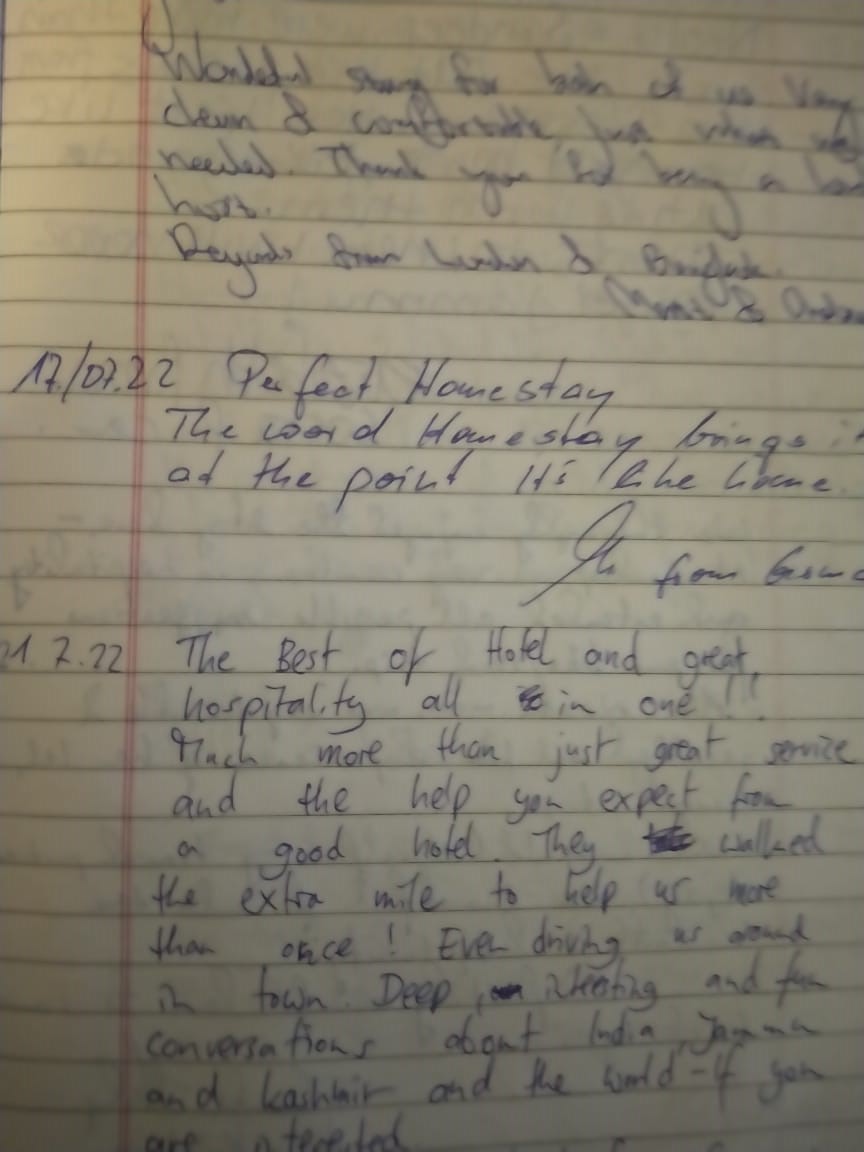 Wonderful stay for both of us Very
clean & comfortable, just what we
needed. Thank you for being a
host.
Regards from London &
&
17/07.22 Perfect Homestay
The word Homestay brings it
at the point It's like home.
from
21.7.22 The Best of Hotel and great
hospitality all in one!!!
Much more than just great service
and the help you expect from
a good hotel. They walked
the extra mile to help us more
than once! Even driving us around
in town. Deep, and fun
conversations about India, Jammu
and Kashmir and the world - if you
are